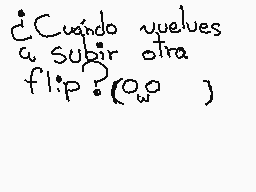 ¿Cuándo vuelves
a subir otra
flip?(OwO )